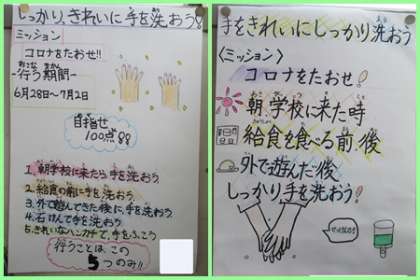 しっかり、きれいに手を洗おう!
ミッション
コロナをたおせ!!
-行う期間-
6月28日~7月2日
目指せ
100点!!
1. 朝学校に来たら手を洗おう
2. 給食の前に手を洗おう
3. 外で遊んできた後に、手を洗おう
4. 石けんで手を洗おう
5. きれいなハンカチで、手をふこう
行うことは、この
5つのみ!!
手をきれいにしっかり洗おう
〈ミッション〉
コロナをたおせ!
朝、学校に来た時
給食を食べる前、後
外で遊んだ後
しっかり手を洗おう!